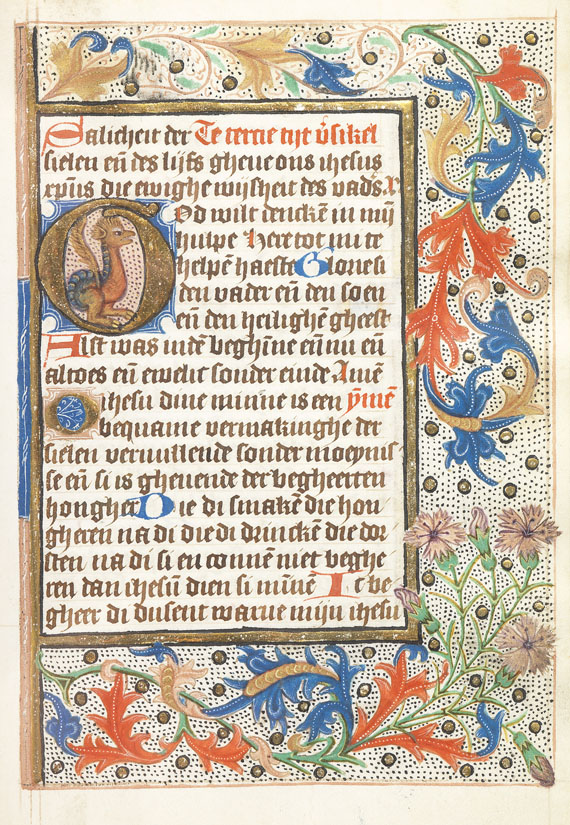 Salicheit der Te tercie tyt v̄sikel
sielen en̄ des lijfs gheue ons ihesus
xp̄us die ewighe wijsheit des vad's
God wilt dencke̅ in mij
hulpe Here tot mi te
helpe̅ haeste Glorie si
den vader en̄ den soen
en̄ den heilighe̅ gheest
Alst was inde̅ beghin̄e en̄ nu en̄
altoes en̄ ewelic sonder einde Ame̅
ihesu dine minne is een ymē
bequame vermakinghe der
sielen veruullende sonder moeynis
se en̄ si is gheuende der begheerten
hongher Die di smake̅ die hon
gheren na di die di drincke̅ die dor
sten na di si en conne̅ niet beghe
ren dan ihesu̅ dien si mi̅ne̅ Ic be
gheer di dusent warue mijn ihesu